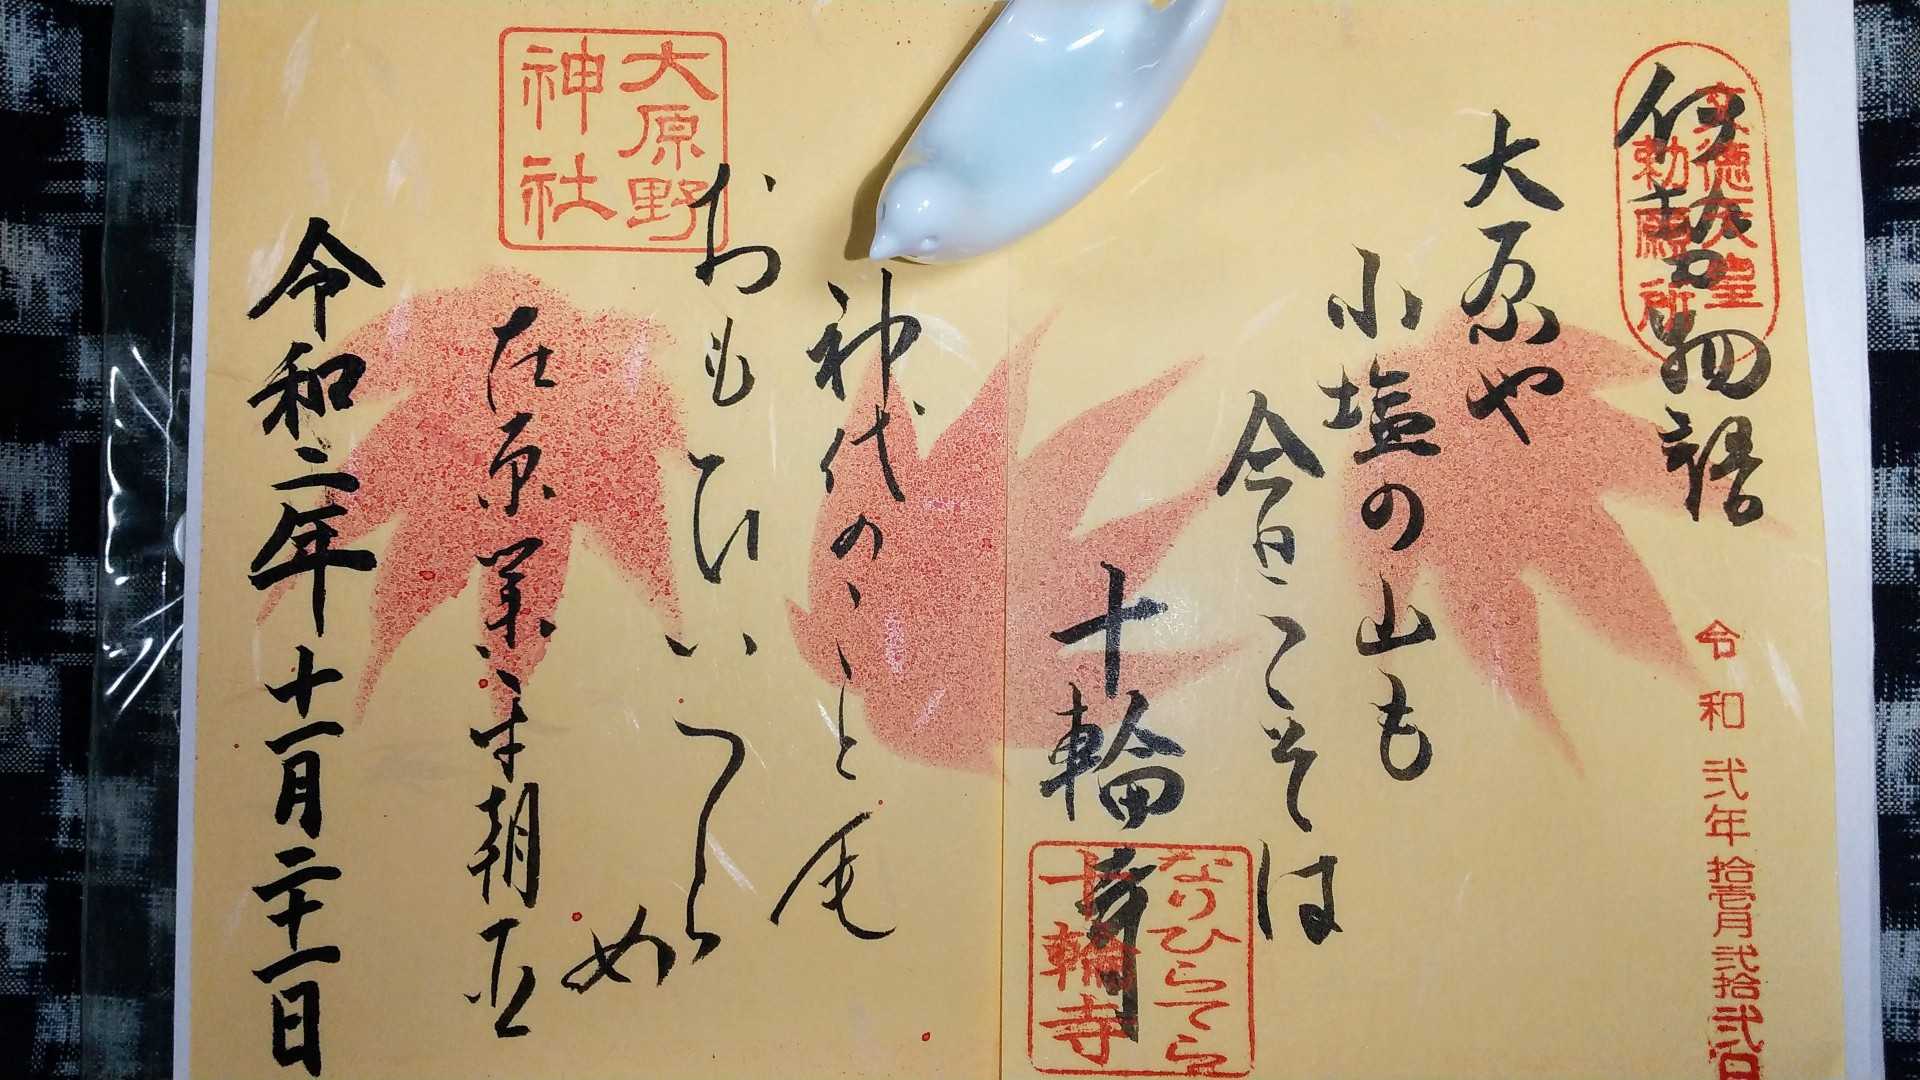 伊勢物語
文徳天皇
勅願所
令和弐年拾壱月弐拾弐日
大原や
小塩の山も
今日こそは
十輪寺
なりひらてら
十輪寺
神代のことも
おもひいつらめ
大原野
神社
在原業平朝臣
令和二年十一月二十一日